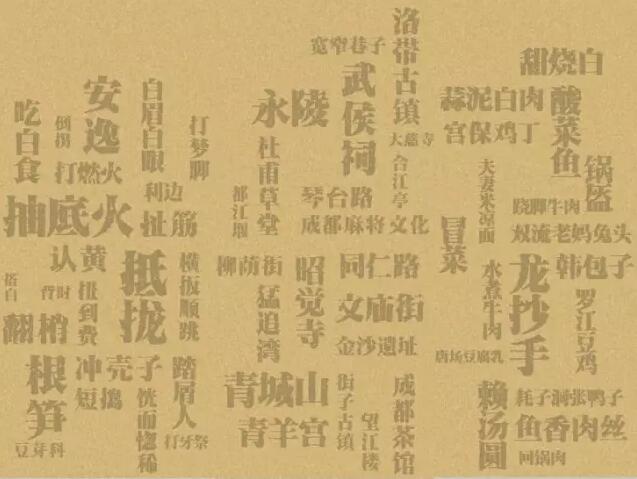 吃白食
倒拐
安逸
打燃火
白眉白眼
利边
打梦脚
抽底火
扯筋
认黄
搭白
背时
扭到费
抵拢
横扳顺跳
翻梢
根笋
豆芽科
冲壳子
短捣
恍而惚稀
踏屑人
打牙祭
宽窄巷子
洛带古镇
永陵
武侯祠
大慈寺
杜甫草堂
都江堰
琴台路
合江亭
成都麻将文化
柳荫街
猛追湾
昭觉寺
同仁路
文庙街
金沙遗址
青城山
青羊宫
街子古镇
望江楼
成都茶馆
甜烧白
蒜泥白肉
宫保鸡丁
酸菜鱼
锅盔
夫妻米凉面
跷脚牛肉
双流老妈兔头
冒菜
水煮牛肉
龙抄手
韩包子
罗江豆鸡
唐场豆腐乳
赖汤圆
耗子洞张鸭子
鱼香肉丝
回锅肉